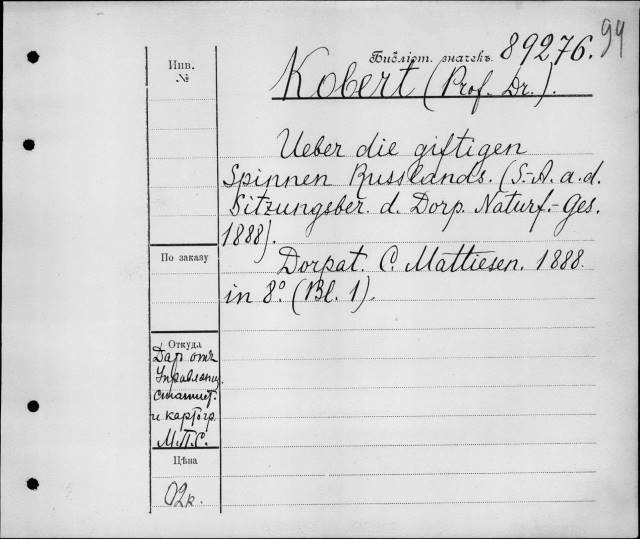 94
Библіот. значекъ. 89276.
Инв.
№
Kobert (Prof. Dr.).
Ueber die giftigen
Spinnen Russlands. (S.-A. a. d.
Sitzungsber. d. Dorp. Naturf.-Ges.
1888).
По заказу
Dorpat. C. Mattiesen. 1888.
in 8º. (Bl. 1).
Откуда
Даръ отъ
Управленія
статист.
и картогр.
М.П.С.
Цѣна
02к.